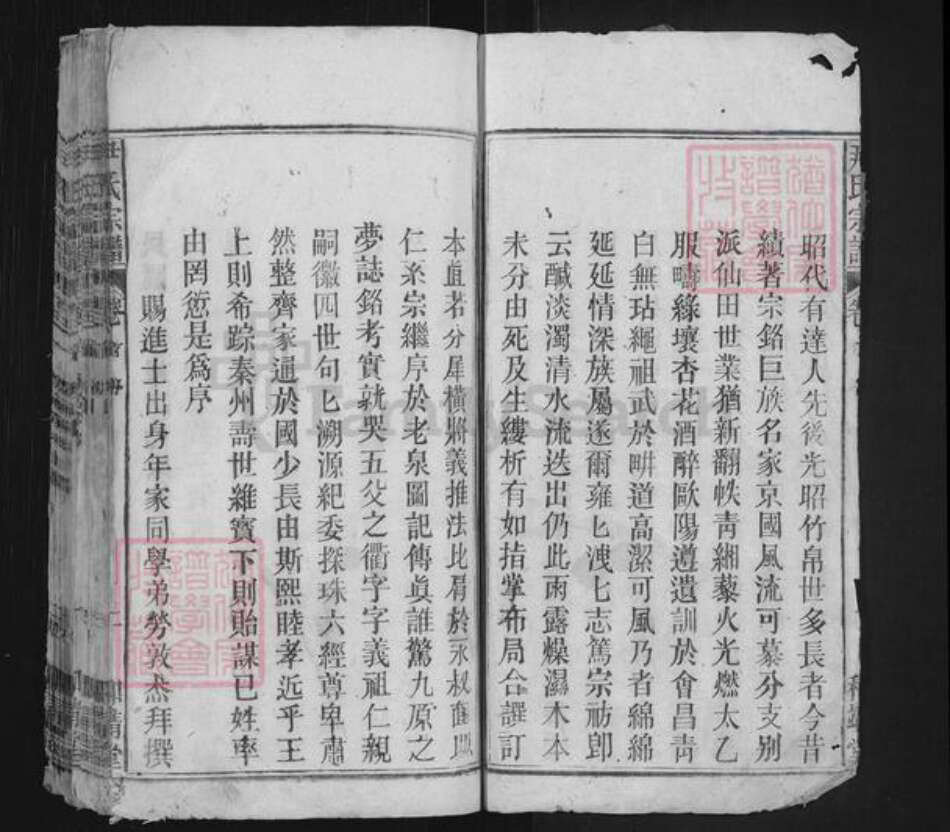 昭代有達人先後光昭竹帛世多長者今昔
績著宗銘巨族名家京國風流可慕分支別
派仙田世業猶新翻帙青緗藜火光燃太乙
服疇緣壞杏花酒醉歐陽遵遺訓於會昌靑
白無玷繩祖武於畊道高潔可風乃者綿綿
延延情深族屬遂爾雍匕洩七志篤宗祊卽
云鹹淡濁清水流迭出仍此雨露燥濕木本
未分由死及生縷析有如指掌布局合譔訂
本直若分犀橫將義推法比肩於永叔舊
仁系宗繼序於老泉圖記傳眞誰驚九原之
夢誌銘考實就哭五父之衢字字義祖仁親
嗣徽四世句匕溯源紀委探珠六經尊卑肅
然整齊家通於國少長由斯熙睦孝近乎王
上則希踪秦州壽世雜賓下則貽謀已姓率
由罔愆是爲序
賜進士出身年家同學弟勞敦杰拜撰
氏宗譜
氏宗譜 卷